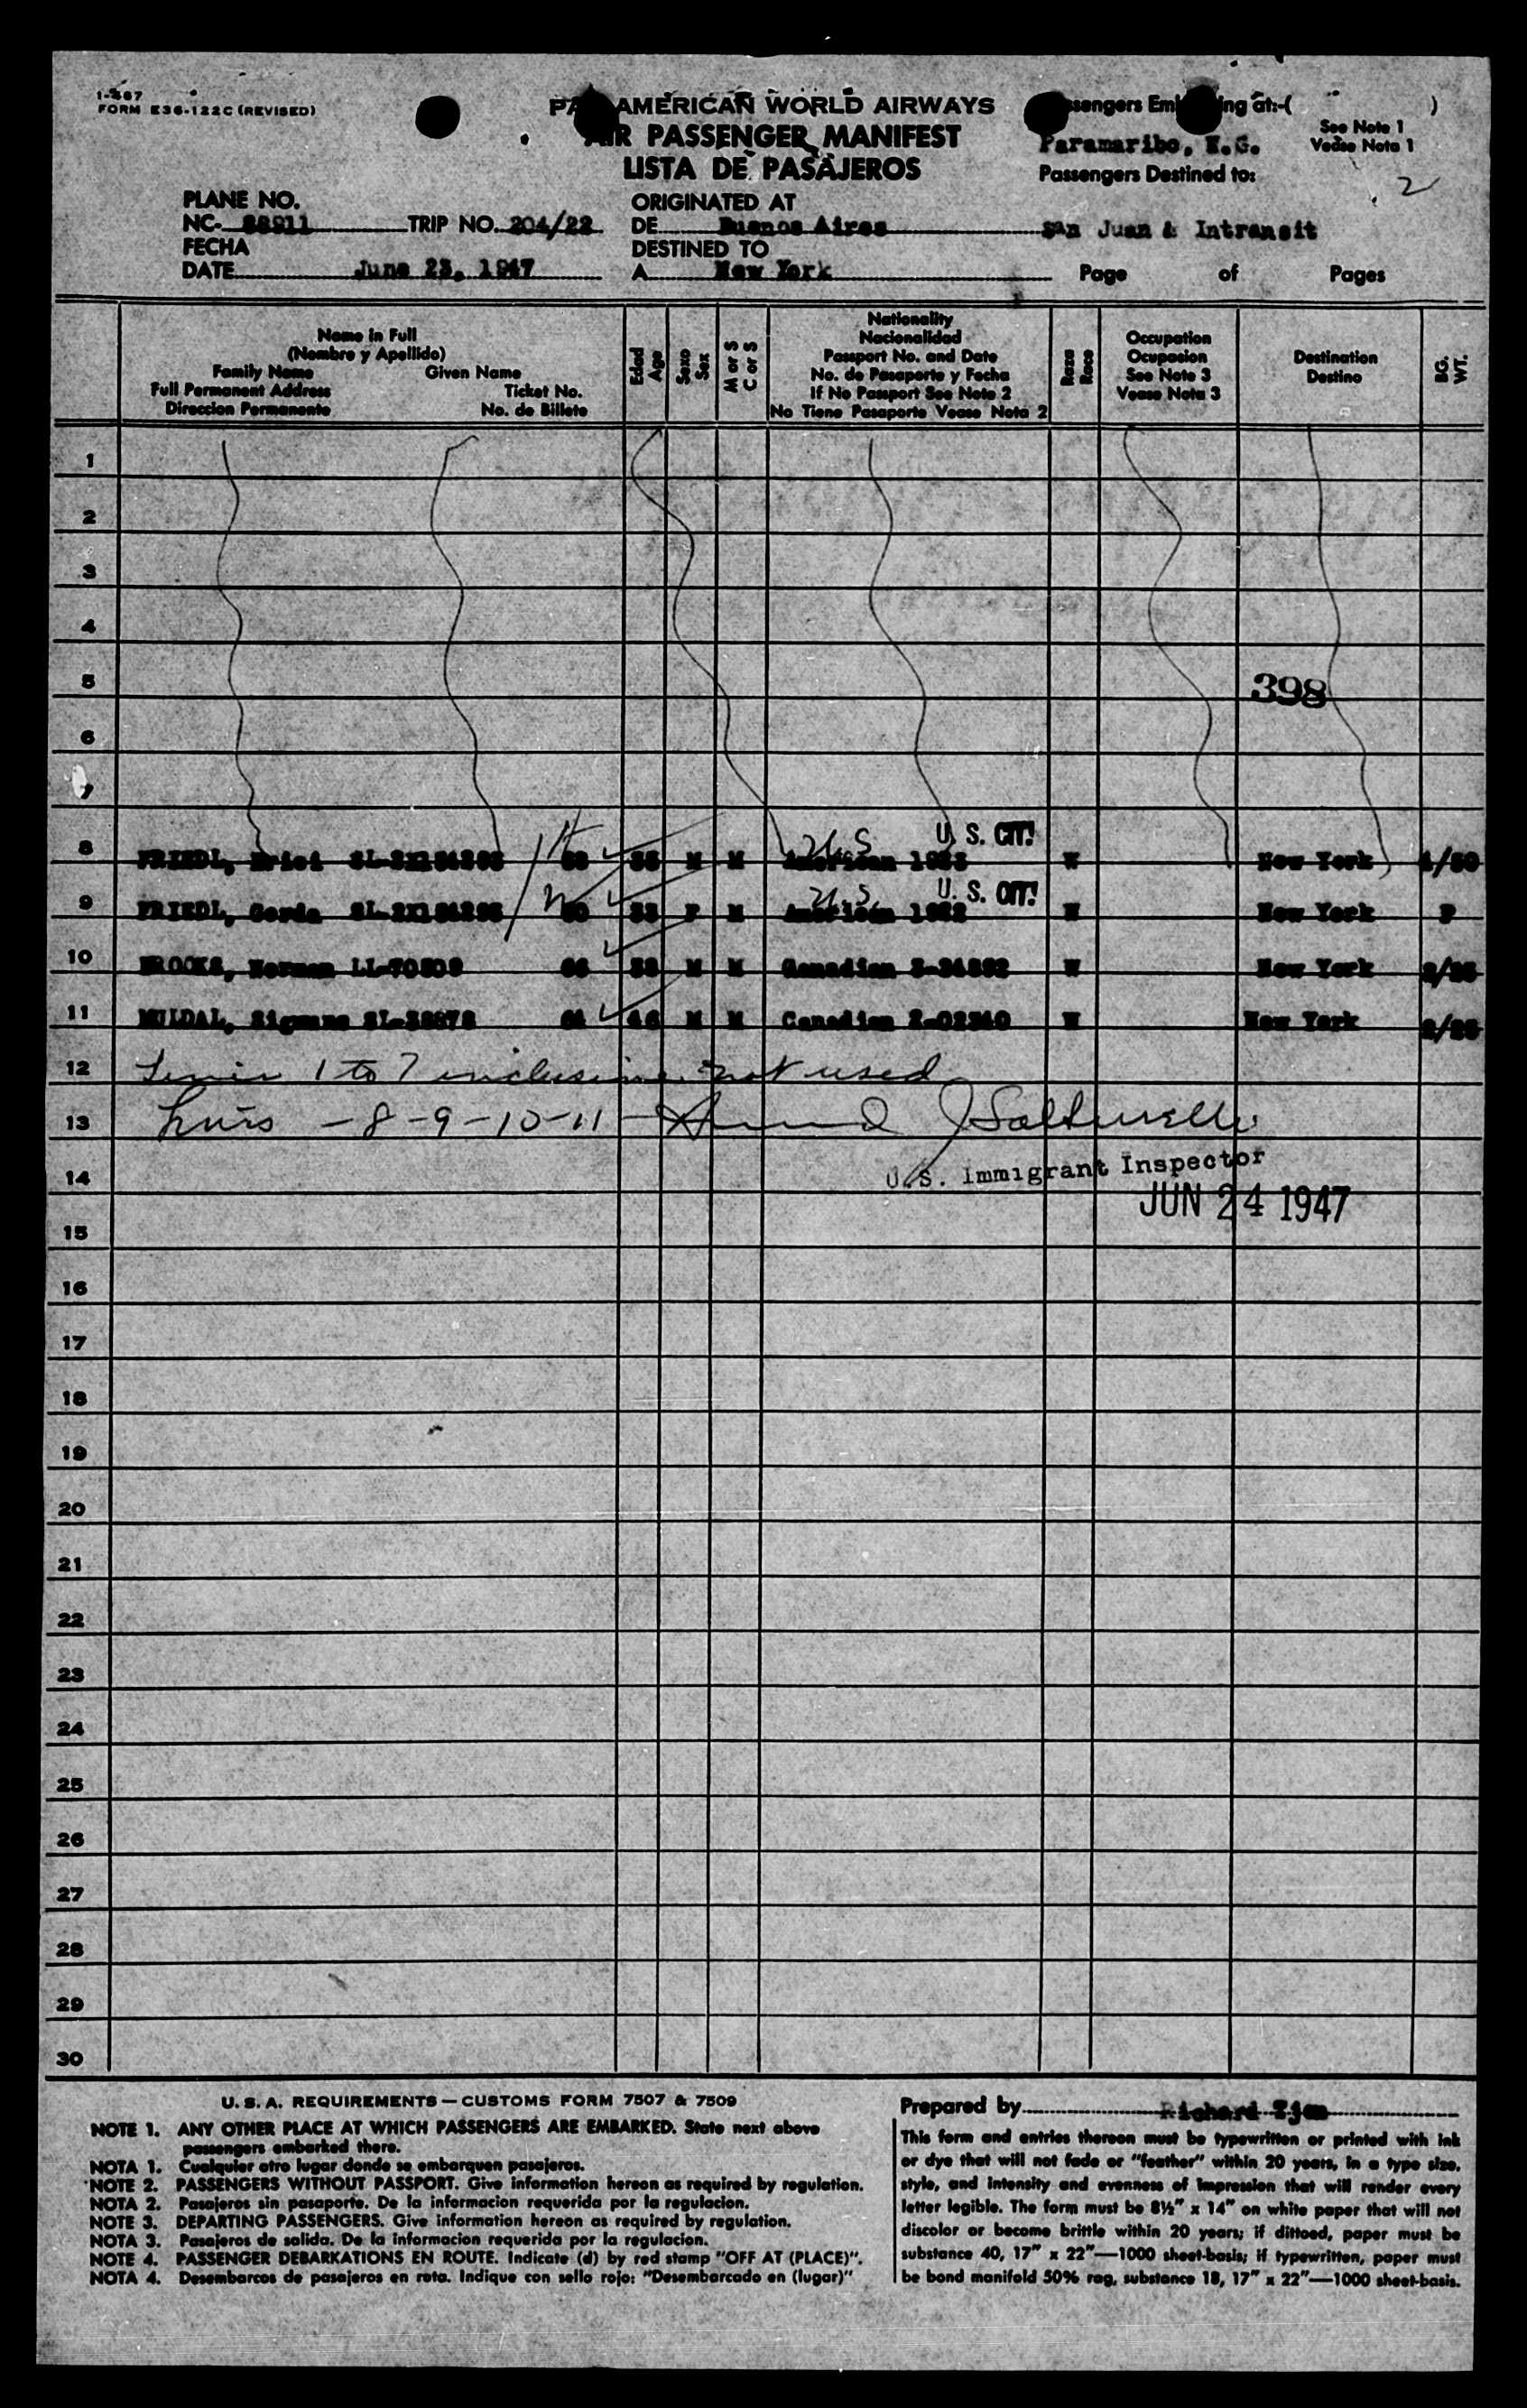 1-467
FORM E36-122C (REVISED)
AMERICAN WORLD AIRWAYS
PASSENGER MANIFEST
LISTA DE PASAJEROS
See Note 1
Paramaribo, N.G. Vease Nota 1
Passengers Destined to:
2
PLANE NO. ORIGINATED AT
NC- 88911 TRIP NO. 204/22 DE Buenos Aires San Juan & Intransit
FECHA DESTINED TO
DATE June 23, 1947 A New York Page of Pages
Name in Full
(Nombre y Apellido)
Family Name Given Name
Full Permanent Address Ticket No.
Direccion Permanente No. de Billete
Edad
Age
Sexo
Sex
M or S
C or S
Nationality
Nacionalidad
Passport No. and Date
No. de Pasaporte y Fecha
If No Passport See Note 2
No Tiene Pasaporte Vease Nota 2
Raza
Race
Occupation
Ocupasion
See Note 3
Vease Nota 3
Destination
Destino
BG.
WT.
1
2
3
4
5 398
6
7
U.S. U. S. CIT!
8 FRIEDL, M M American W New York
U.S. U. S. CIT!
9 FRIEDL, Gerda 33 F M American W New York F
10 BROOKS, Norman LL-70509 M M Canadian W New York
11 MULDAL, 46 M M Canadian W New York
12 Lines 1 to 7 inclusive not used
13 Lines - 8-9-10-11 -
14 U.S. Immigrant Inspector
JUN 24 1947
15
16
17
18
19
20
21
22
23
24
25
26
27
28
29
30
U.S.A. REQUIREMENTS — CUSTOMS FORM 7507 & 7509
NOTE 1. ANY OTHER PLACE AT WHICH PASSENGERS ARE EMBARKED. State next above
passengers embarked there.
NOTA 1. Cualquier otro lugar donde se embarquen pasajeros.
NOTE 2. PASSENGERS WITHOUT PASSPORT. Give information hereon as required by regulation.
NOTA 2. Pasajeros sin pasaporte. De la informacion requerida por la regulacion.
NOTE 3. DEPARTING PASSENGERS. Give information hereon as required by regulation.
NOTA 3. Pasajeros de salida. De la informacion requerida por la regulacion.
NOTE 4. PASSENGER DEBARKATIONS EN ROUTE. Indicate (d) by red stamp "OFF AT (PLACE)".
NOTA 4. Desembarcos de pasajeros en rota. Indique con sello rojo: "Desembarcado en (lugar)"
Prepared by Richard
This form and entries thereon must be typewritten or printed with ink
or dye that will not fade or "feather" within 20 years, in a type size,
style, and intensity and evenness of impression that will render every
letter legible. The form must be 8½" x 14" on white paper that will not
discolor or become brittle within 20 years; if dittoed, paper must be
substance 40, 17" x 22"—1000 sheet-basis; if typewritten, paper must
be bond manifold 50% rag, substance 18, 17" x 22"—1000 sheet-basis.